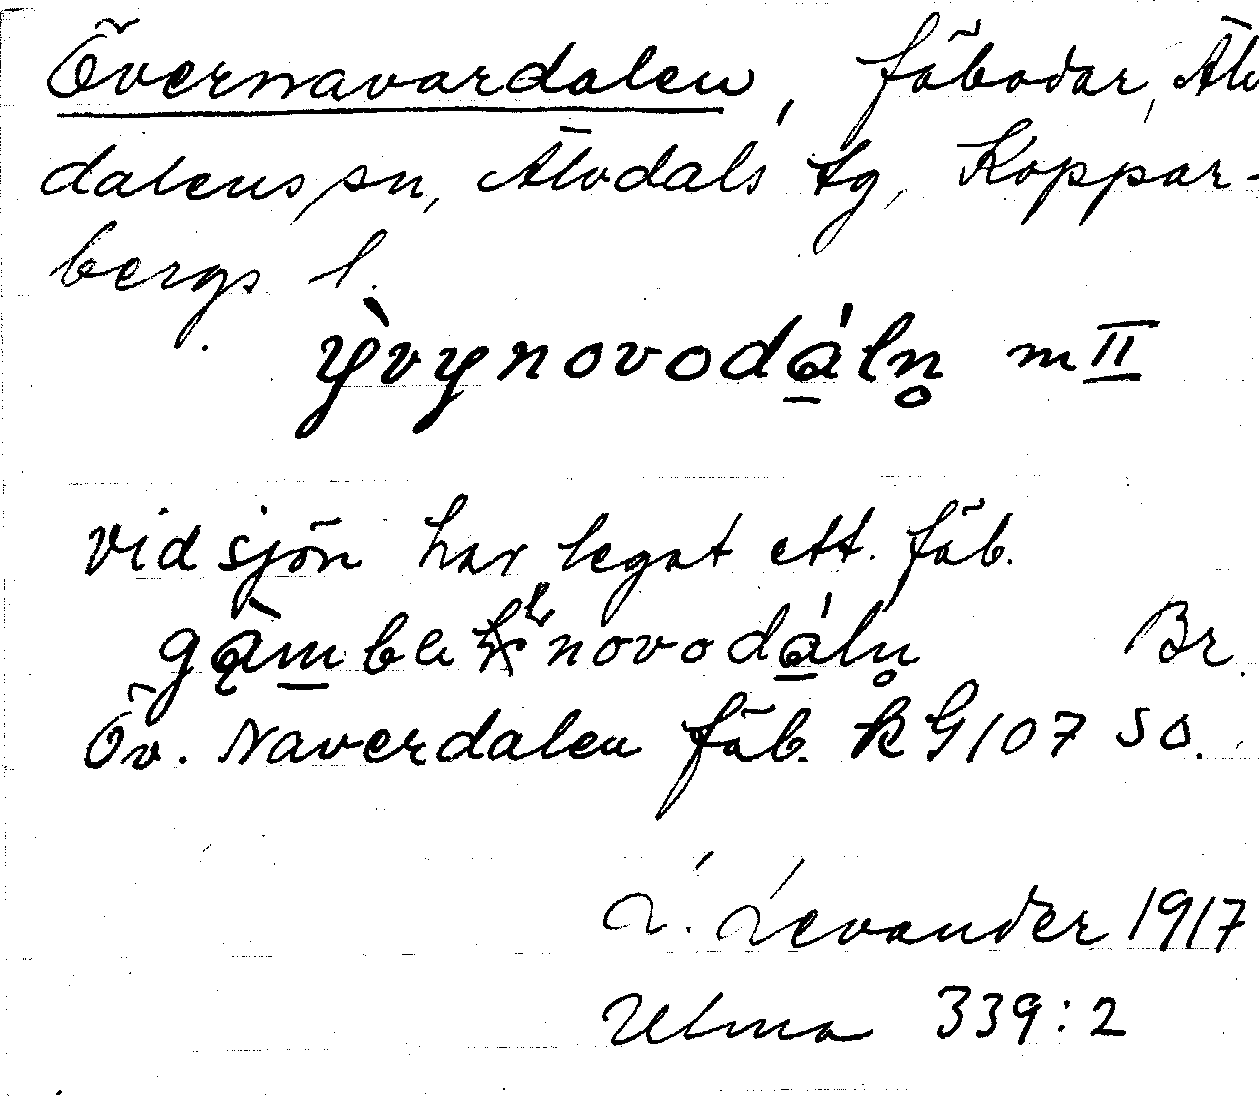 Övernavardalen, fäbodar, Älv
dalens sn, Älvdals tg, Koppar-
bergs l.
ỳvynovodáln̥ m II
Vid sjön har legat ett fäb.
gą̀mbel novodáln̥ Br.
Öv. Naverdalen fäb. RG 107 SO.
L. Levander 1917
Ulma 339:2